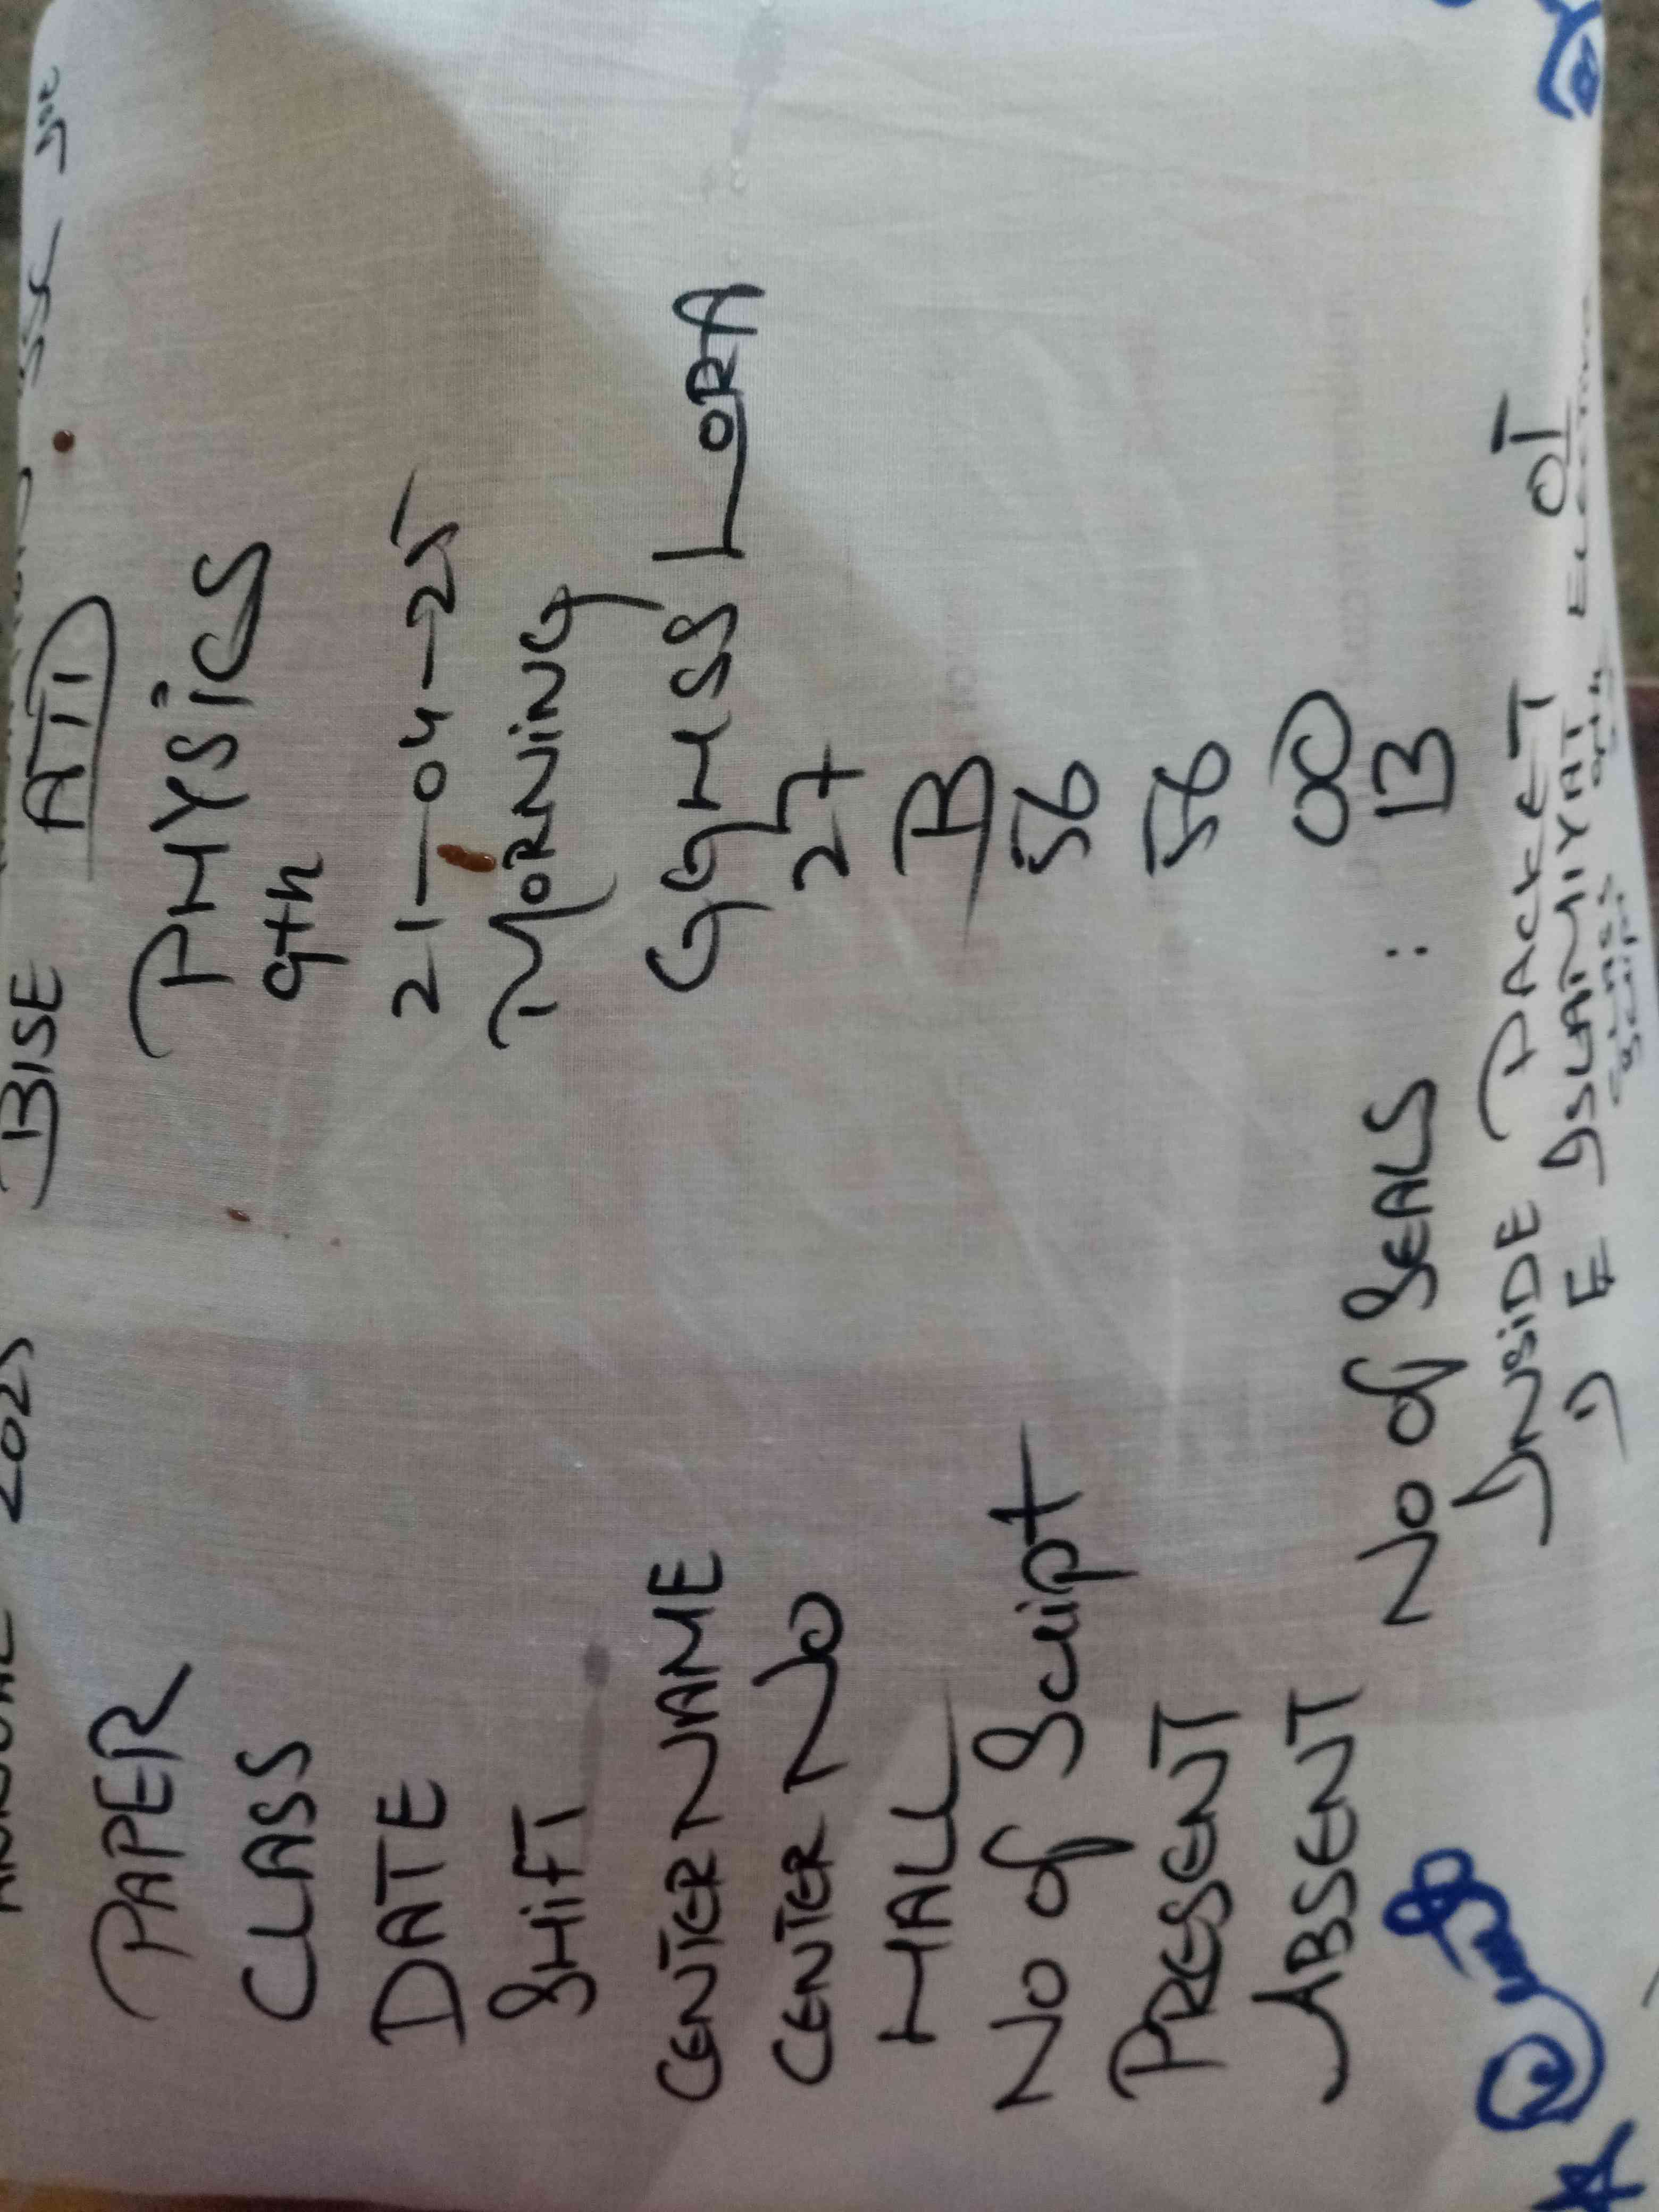 ANNUAL 2025 BISE ATD
PAPER PHYSICS
CLASS 9th
DATE 21-04-25
SHIFT MORNING
CENTER NAME GGHSS LORA
CENTER NO 27
HALL B
No of Script 56
PRESENT 56
ABSENT 00
No of SEALS : 13
INSIDE PACKET 01
ISLAMIYAT ELECTIVE